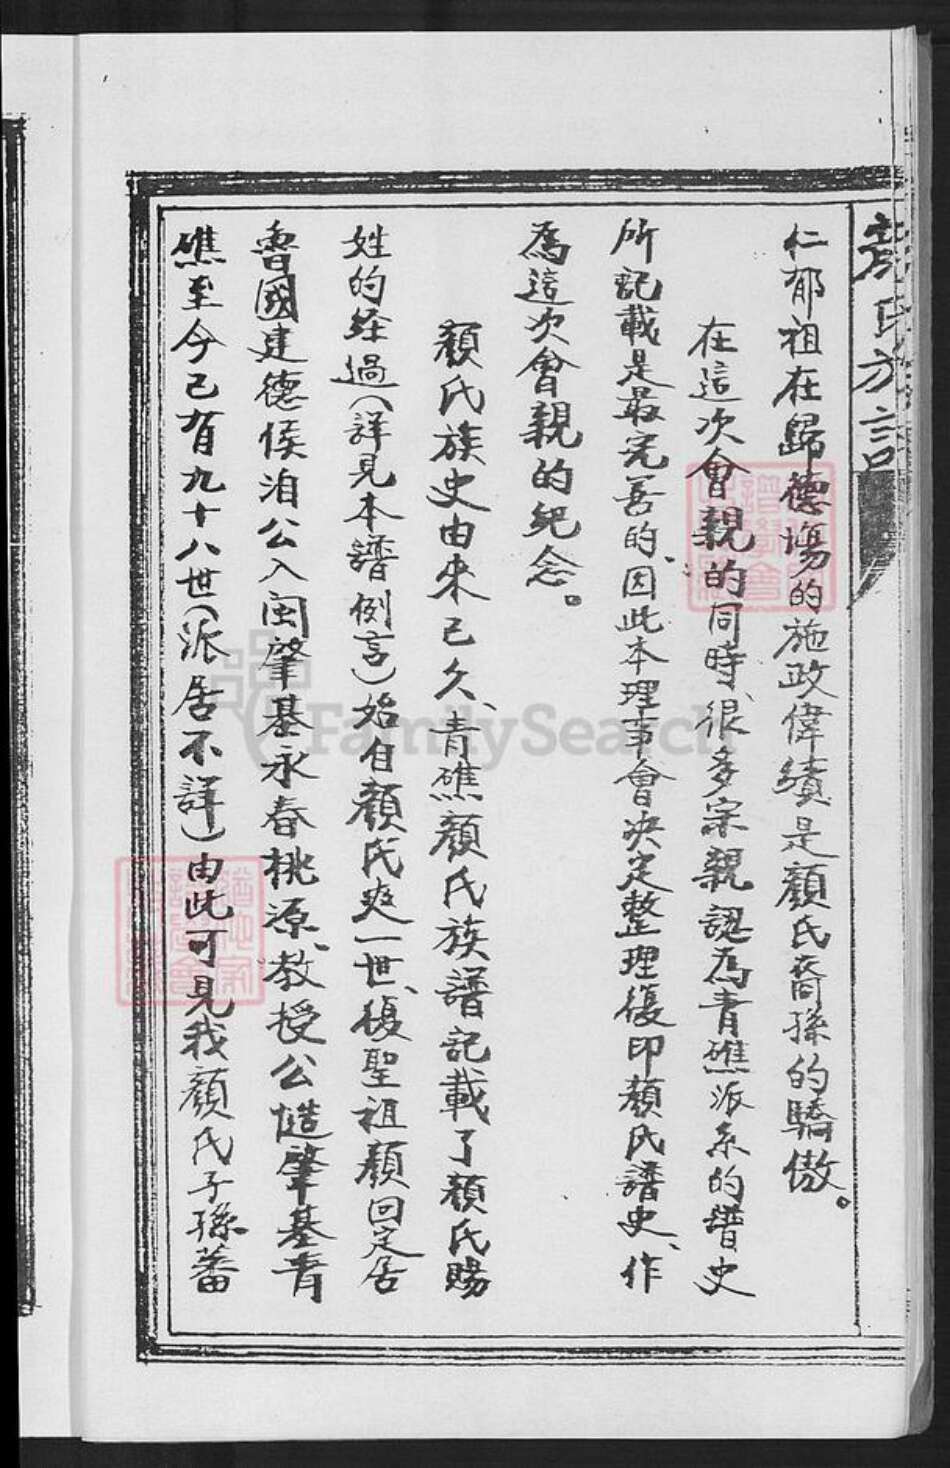 顏氏方言
仁郁祖在歸德場的施政偉績是顏氏裔孫的驕傲。
在這次會親的同時、很多宗親認為青礁派系的譜史
所記載是最完善的、因此本理事會決定整理復印顏氏譜史、作
為這次會親的紀念。
顏氏族史由來已久、青礁顏氏族譜記載了顏氏賜
姓的经過（詳見本譜例言）始自顏氏爽一世、複聖祖顏回定居
魯國建德侯洎公入閩肇基永春桃源、教授公慥肇基青
礁至今已有九十八世（派居不詳）由此可見我顏氏子孫蕃
FamilySearch